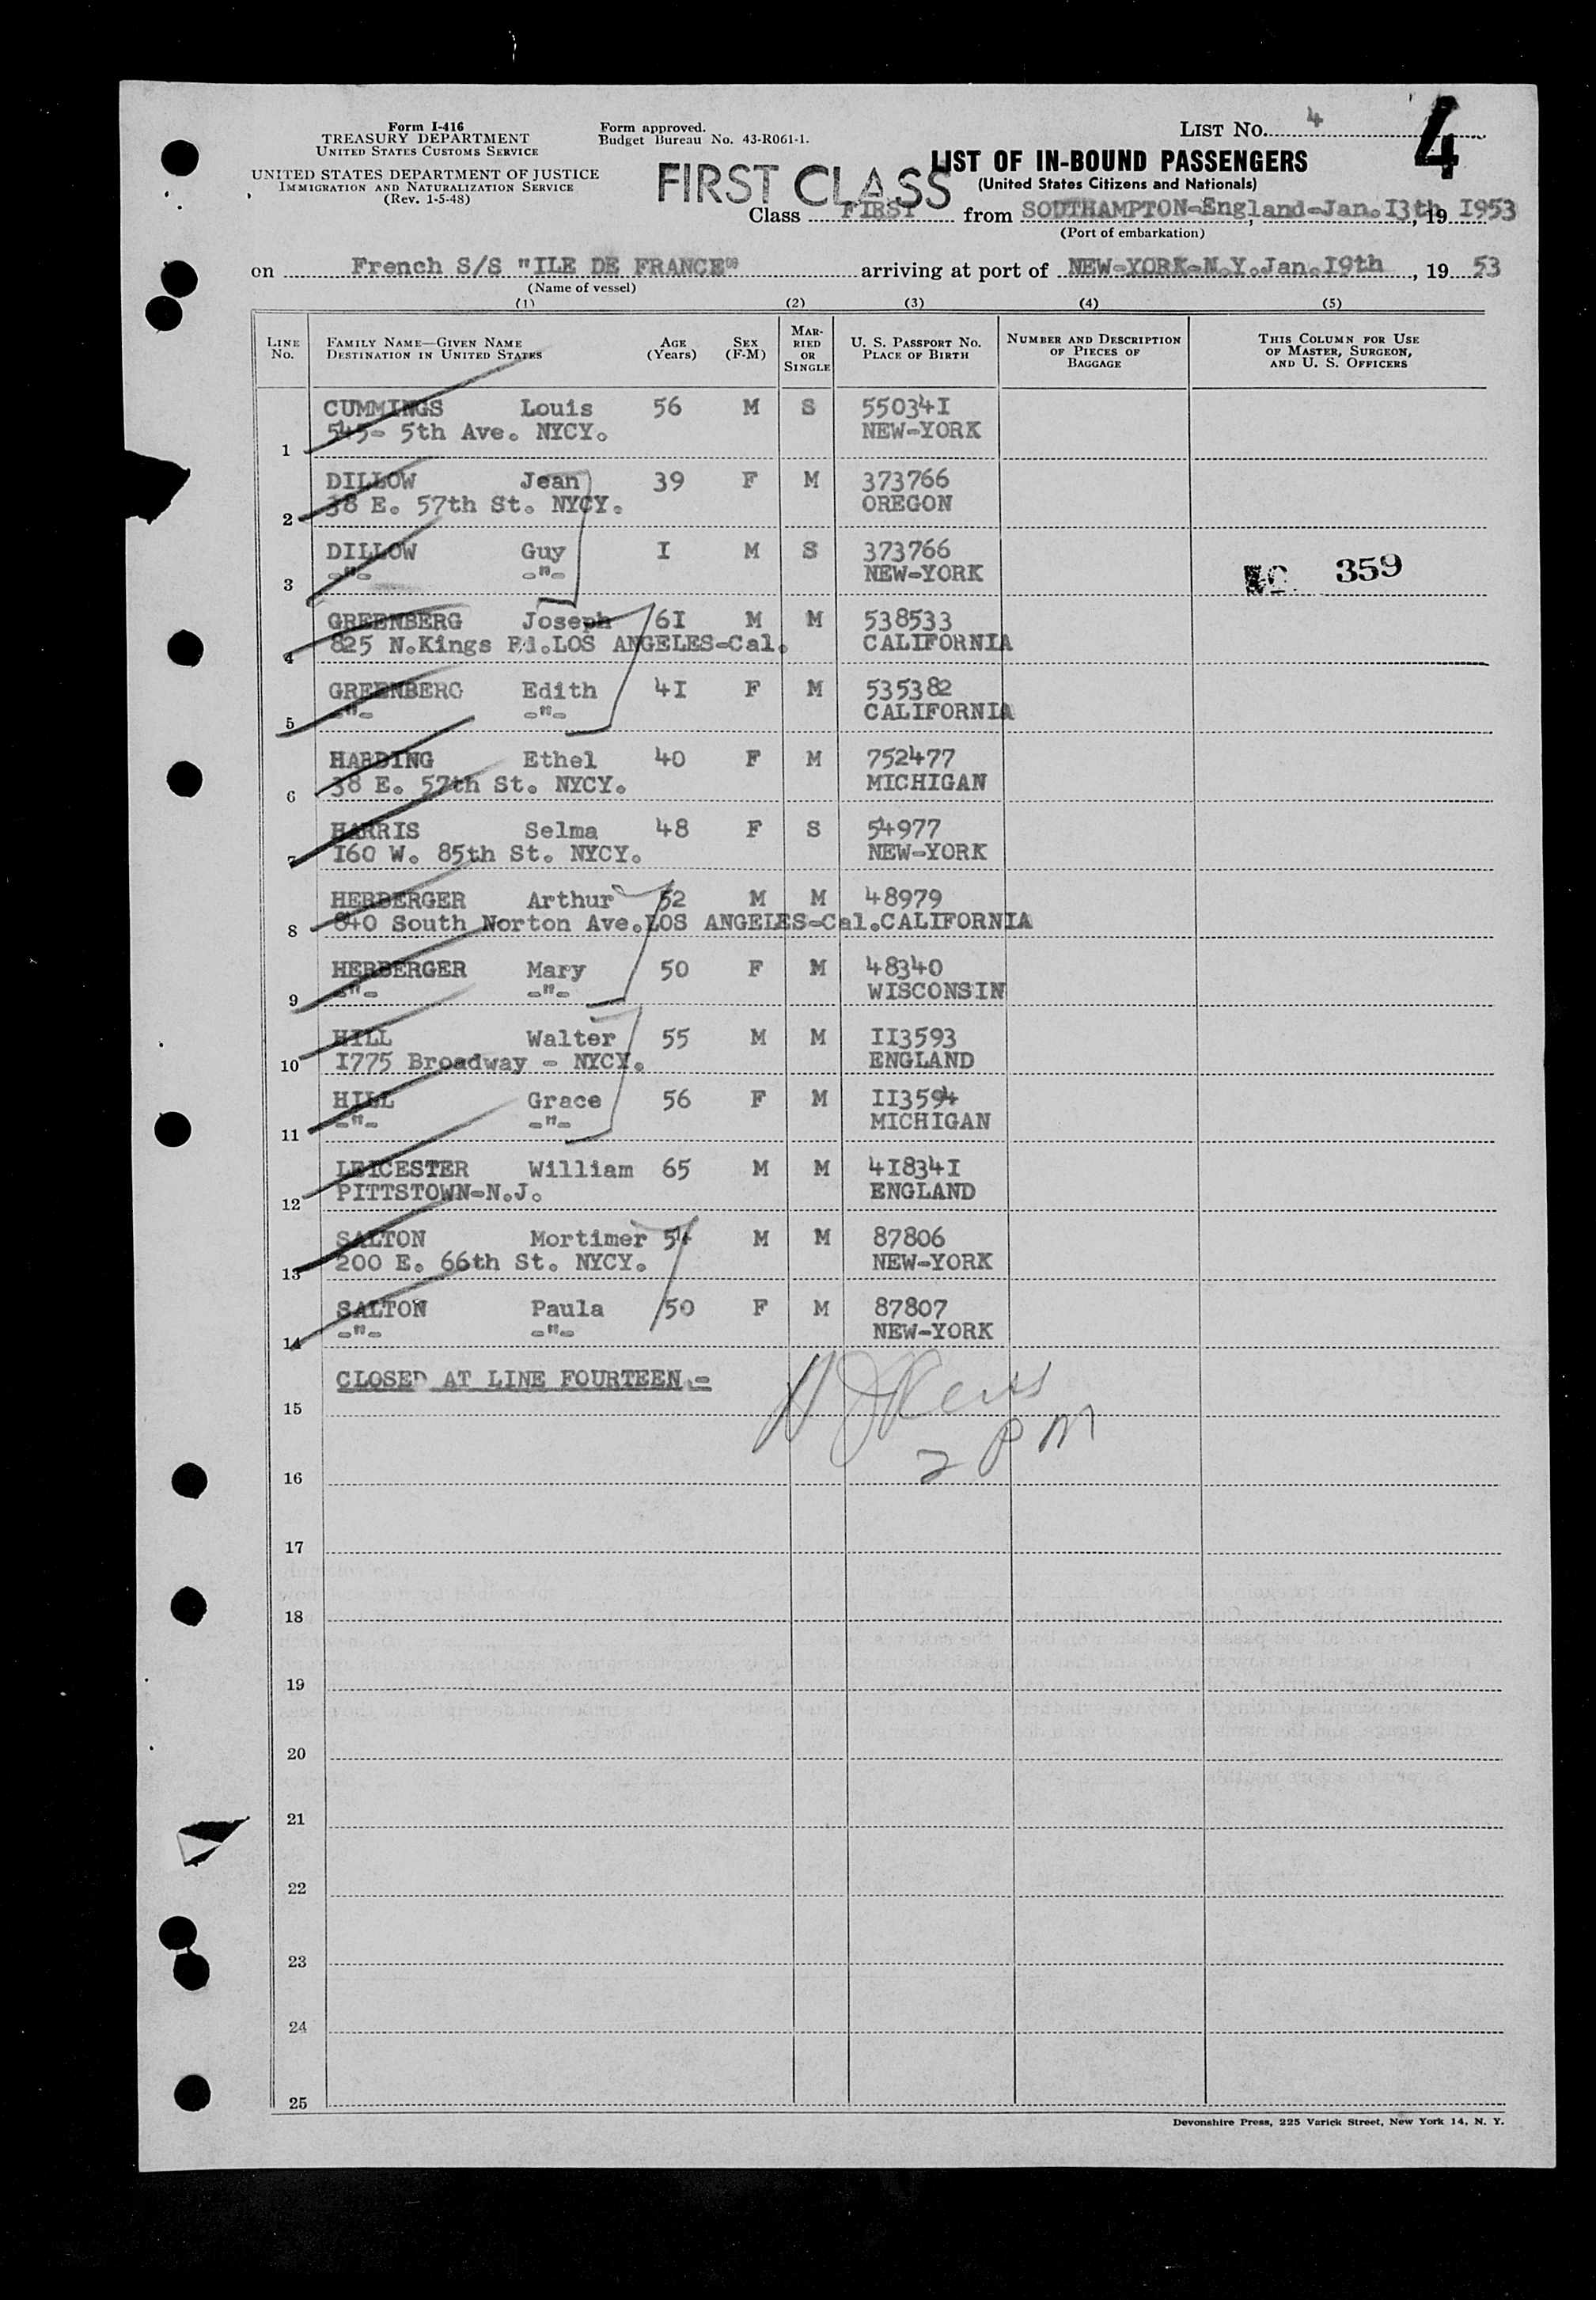 Form I-416
TREASURY DEPARTMENT
UNITED STATES CUSTOMS SERVICE
UNITED STATES DEPARTMENT OF JUSTICE
IMMIGRATION AND NATURALIZATION SERVICE
(Rev. 1-5-48)
Form approved.
Budget Bureau No. 43-R061-1.
LIST No. 4
4
FIRST CLASS
LIST OF IN-BOUND PASSENGERS
(United States Citizens and Nationals)
Class FIRST from SOUTHAMPTON-England-Jan.I3th, 19 I953
(Port of embarkation)
on French S/S "ILE DE FRANCE" arriving at port of NEW-YORK-N.Y.Jan.I9th, 19 53
(Name of vessel)
(1) (2) (3) (4) (5)
LINE No. FAMILY NAME—GIVEN NAME DESTINATION IN UNITED STATES AGE (Years) SEX (F-M) MARRIED OR SINGLE U. S. PASSPORT No. PLACE OF BIRTH NUMBER AND DESCRIPTION OF PIECES OF BAGGAGE THIS COLUMN FOR USE OF MASTER, SURGEON, AND U. S. OFFICERS
CUMMINGS Louis 56 M S 55034I
1 545- 5th Ave. NYCY. NEW-YORK
DILLOW Jean 39 F M 373766
2 38 E. 57th St. NYCY. OREGON
DILLOW Guy I M S 373766
3 -"- -"- NEW-YORK 359
GREENBERG Joseph 6I M M 538533
4 825 N.Kings Rd.LOS ANGELES-Cal. CALIFORNIA
GREENBERG Edith 4I F M 535382
5 -"- -"- CALIFORNIA
HARDING Ethel 40 F M 752477
6 38 E. 57th St. NYCY. MICHIGAN
HARRIS Selma 48 F S 54977
7 I60 W. 85th St. NYCY. NEW-YORK
HERBERGER Arthur 52 M M 48979
8 840 South Norton Ave.LOS ANGELES-Cal.CALIFORNIA
HERBERGER Mary 50 F M 48340
9 -"- -"- WISCONSIN
HILL Walter 55 M M II3593
10 I775 Broadway - NYCY. ENGLAND
HILL Grace 56 F M II3594
11 -"- -"- MICHIGAN
LEICESTER William 65 M M 4I834I
12 PITTSTOWN-N.J. ENGLAND
SALTON Mortimer 54 M M 87806
13 200 E. 66th St. NYCY. NEW-YORK
SALTON Paula 50 F M 87807
14 -"- -"- NEW-YORK
CLOSED AT LINE FOURTEEN.-
15
2 PM
16
17
18
19
20
21
22
23
24
25
Devonshire Press, 225 Varick Street, New York 14, N. Y.